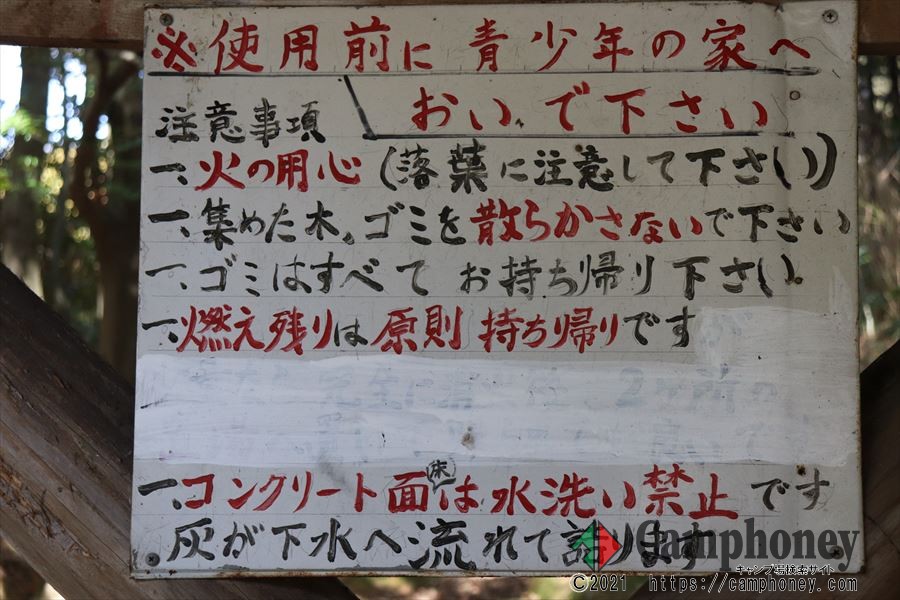 ※使用前に青少年の家へ
おいで下さい
注意事項
一、火の用心(落葉に注意して下さい)
一、集めた木、ゴミを散らかさないで下さい
一、ゴミはすべてお持ち帰り下さい
一、燃え残りは原則持ち帰りです
一、コンクリート面(床)は水洗い禁止です
灰が下水へ流れて詰ります
Camphoney
キャンプ場検索サイト
©2021 https://camphoney.com